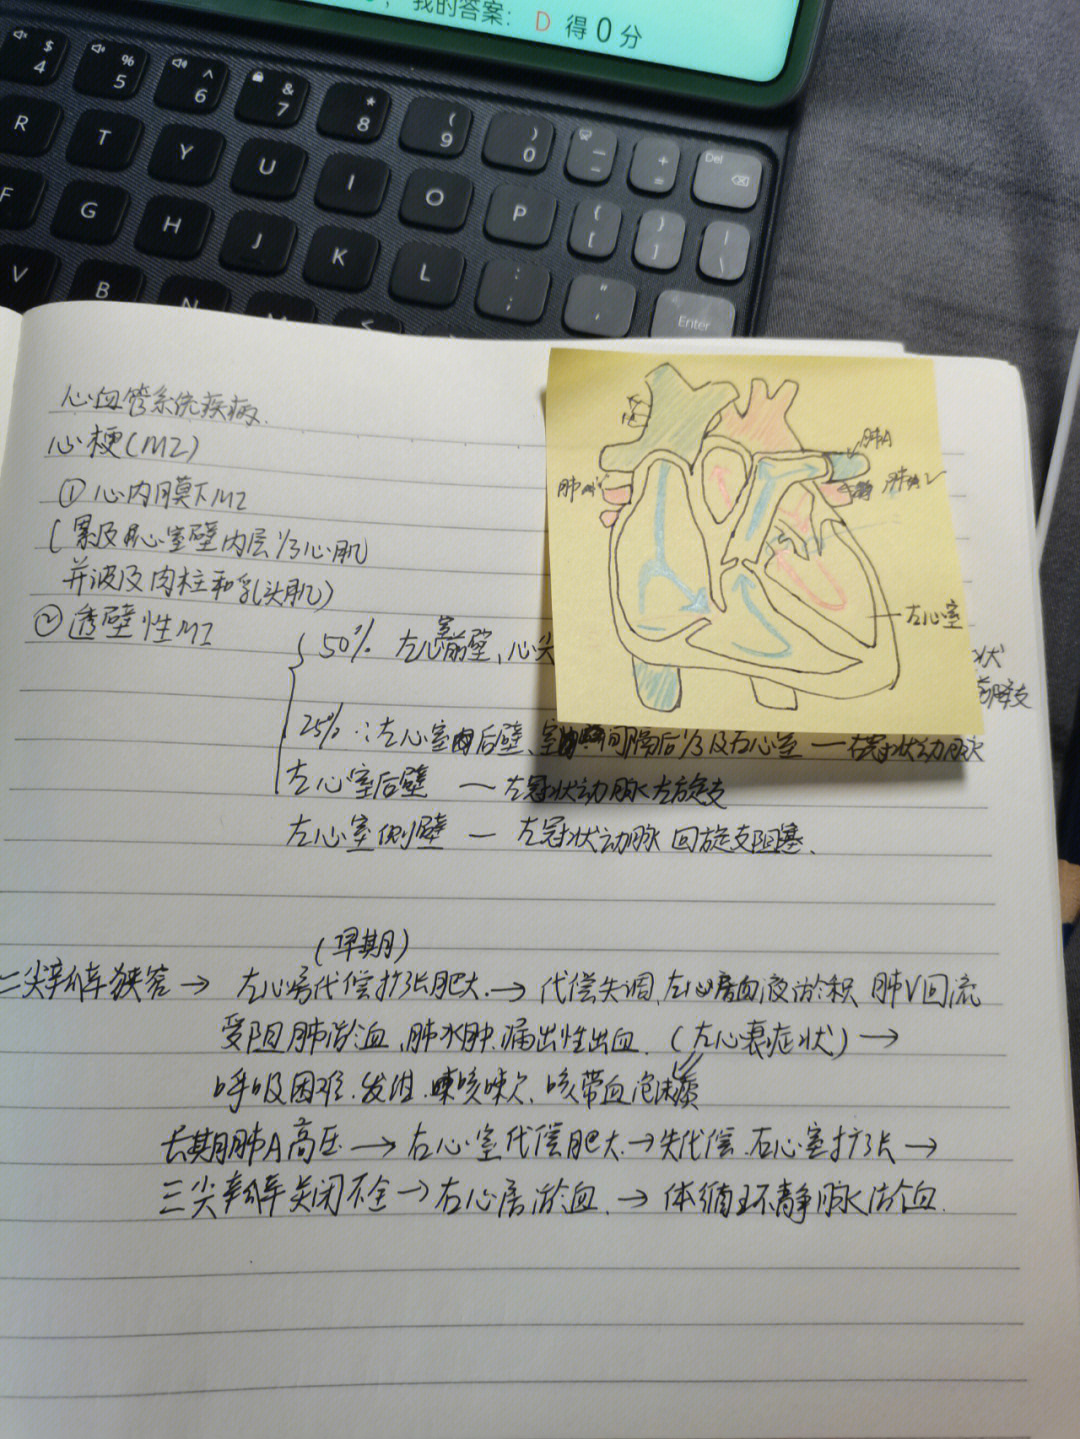 我的答案： D 得 0 分
$ 4 % 5 ^ 6 & 7 * 8 ( 9 ) 0 — - + = Del
R T Y U I O P { [ } ] | \
F G H J K L : ; " ' Enter
V B N M <
心血管系统疾病.
心梗(MI)
① 心内膜下MI
(累及心室壁内层1/3心肌
并波及肉柱和乳头肌)
② 透壁性MI
50% 左心室前壁、心尖
状
前降支
25%：左心室后壁、室间隔后1/3及右心室 — 右冠状动脉
左心室后壁 — 左冠状动脉左旋支
左心室侧壁 — 左冠状动脉 回旋支阻塞.
肺A
肺V
肺
左心室
(早期)
二尖瓣狭窄 → 左心房代偿扩张肥大. → 代偿失调,左心房血液淤积 肺V回流
受阻 肺淤血、肺水肿.漏出性出血. (左心衰症状) →
呼吸困难.发绀.咳嗽、咳带血泡沫痰
长期肺A高压 → 右心室代偿肥大. → 失代偿.右心室扩张 →
三尖瓣关闭不全 → 右心房淤血. → 体循环静脉淤血.